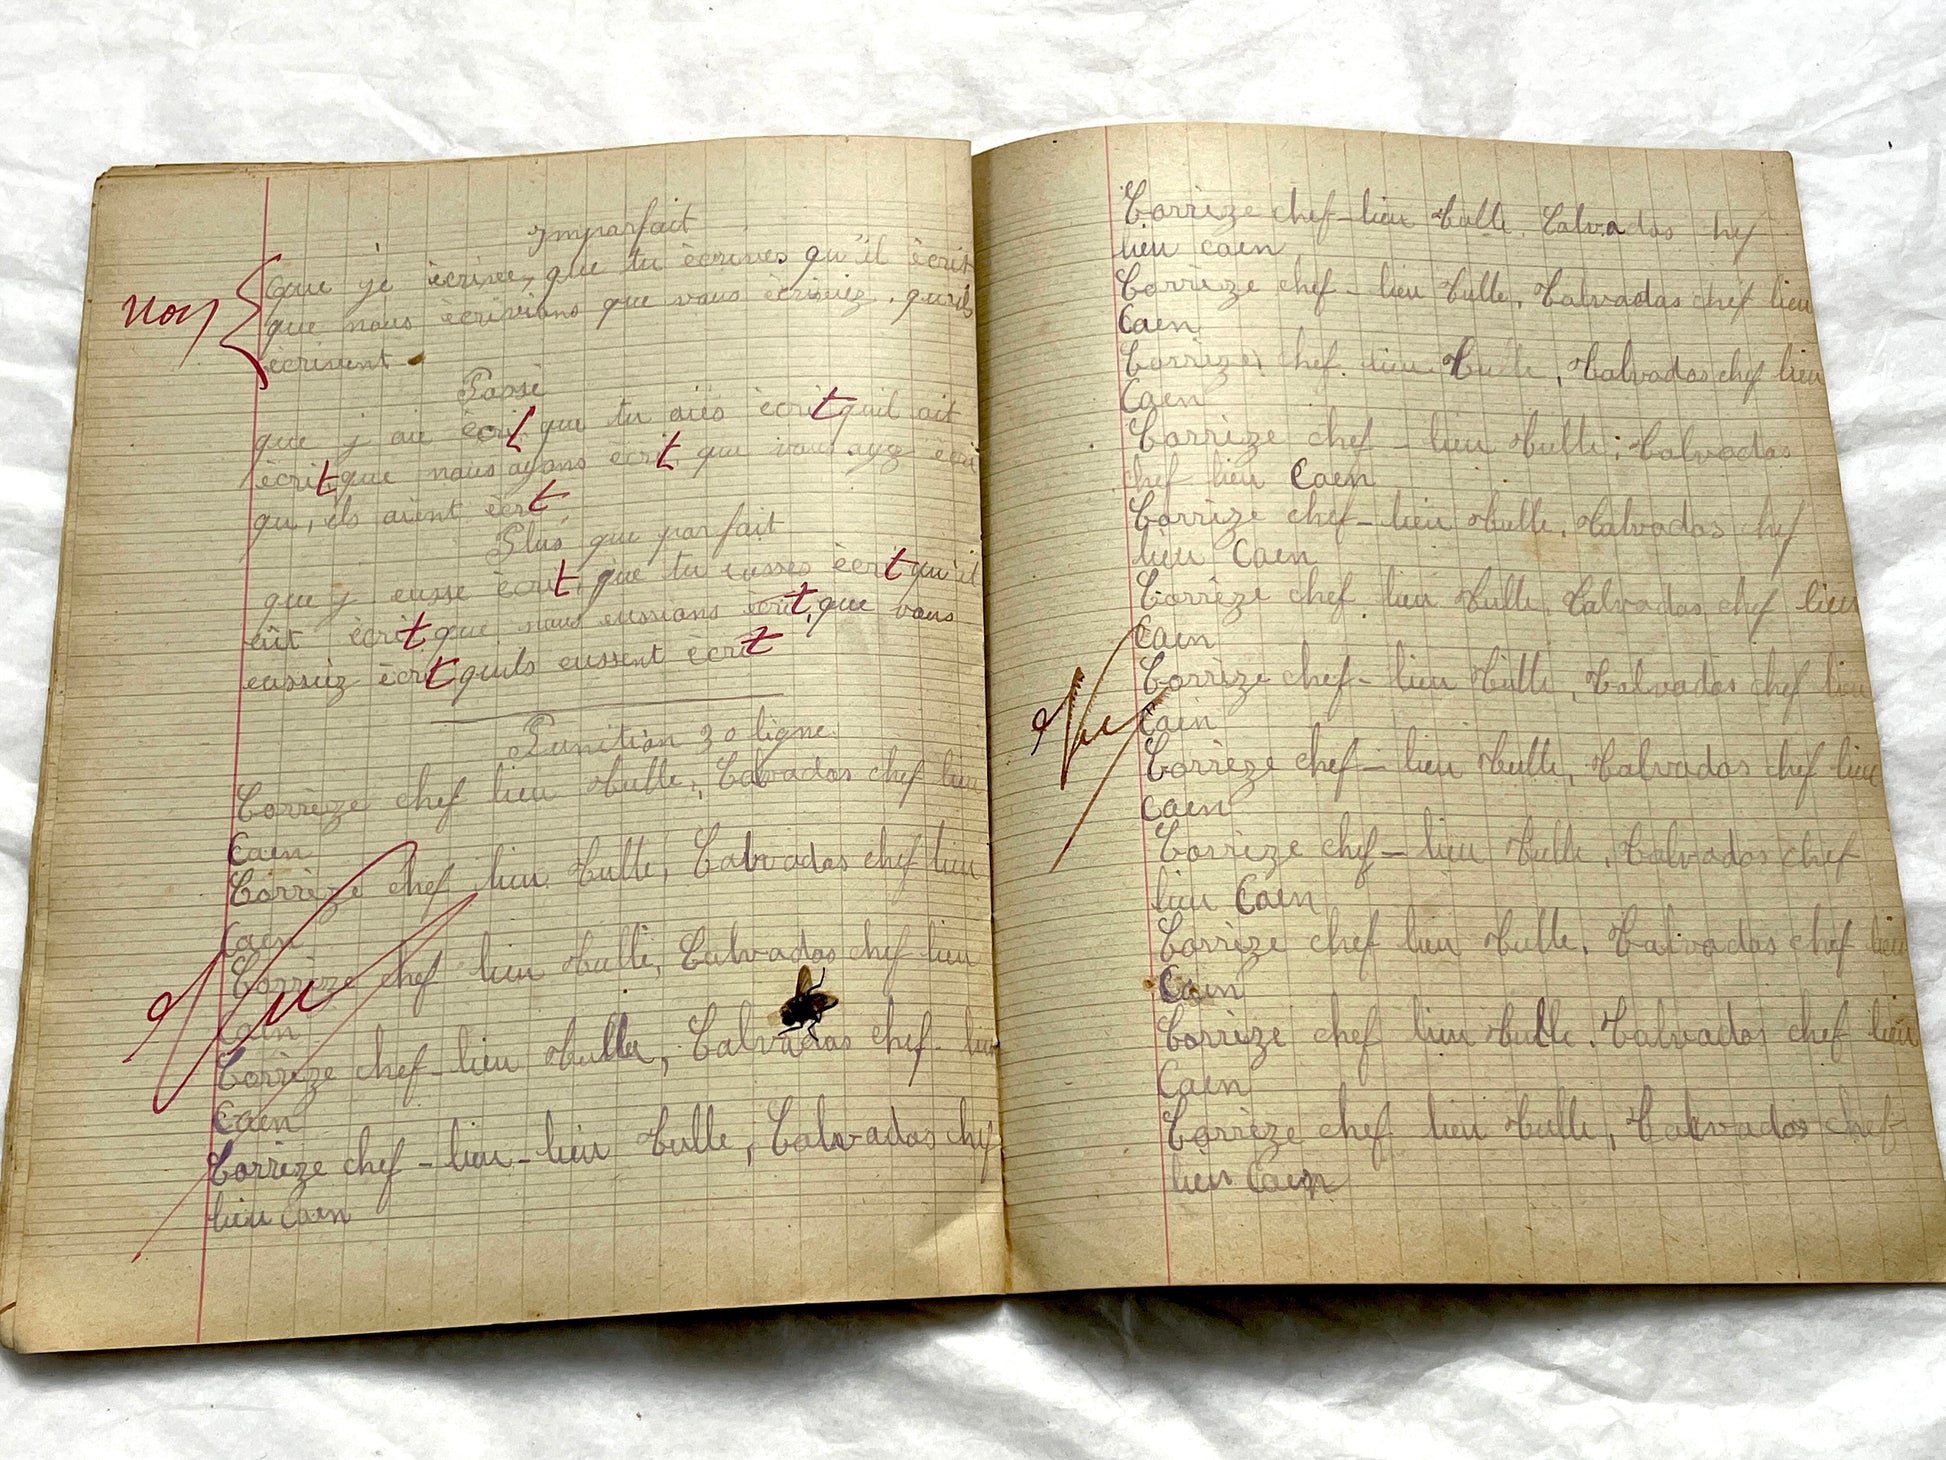 Imparfait
que je écrives, que tu écrives qu'il écrit
que nous écrivions que vous écriviez, qu'ils
écrivent
non
Passé
que j aie écrit que tu aies écrit quil ait
écrit que nous ayons écrit que vous ayez
qu, ils aient écrt
Plus que parfait
que j eusse écrit, que tu eusses écrit qu'il
eût écrit que nous eussions écrit, que vous
eussiez écrit quils eussent écrit
Punition 30 ligne.
Corrèze chef lieu Tulle, Calvados chef lieu
Caen
Corrèze chef lieu Tulle, Calvados chef lieu
Caen
Corrèze chef lieu Tulle, Calvados chef lieu
Caen
Vu
Corrèze chef-lieu Tulle, Calvados chef-lieu
Caen
Corrèze chef-lieu-lieu Tulle, Calvados chef
lieu Caen
Corrèze chef-lieu Tulle. Calvados hef
lieu caen
Corrèze chef-lieu Tulle, Calvados chef lieu
Caen
Corrèze, chef. lieu Tulle, Calvados chef lieu
Caen
Corrèze chef-lieu Tulle; Calvados
chef lieu Caen
Corrèze chef-lieu Tulle, Calvados chef
lieu Caen
Corrèze chef lieu Tulle, Calvados, chef lieu
Caen
Corrèze chef-lieu Tulle, Calvados chef lieu
Caen
Vu
Corrèze chef-lieu Tulle, Calvados chef lieu
Caen
Corrèze chef-lieu Tulle, Calvados chef
lieu Caen
Corrèze chef lieu Tulle, Calvados chef lieu
Caen
Corrèze chef lieu Tulle. Calvados chef lieu
Caen
Corrèze chef lieu Tulle, Calvados chef
lieu Caen